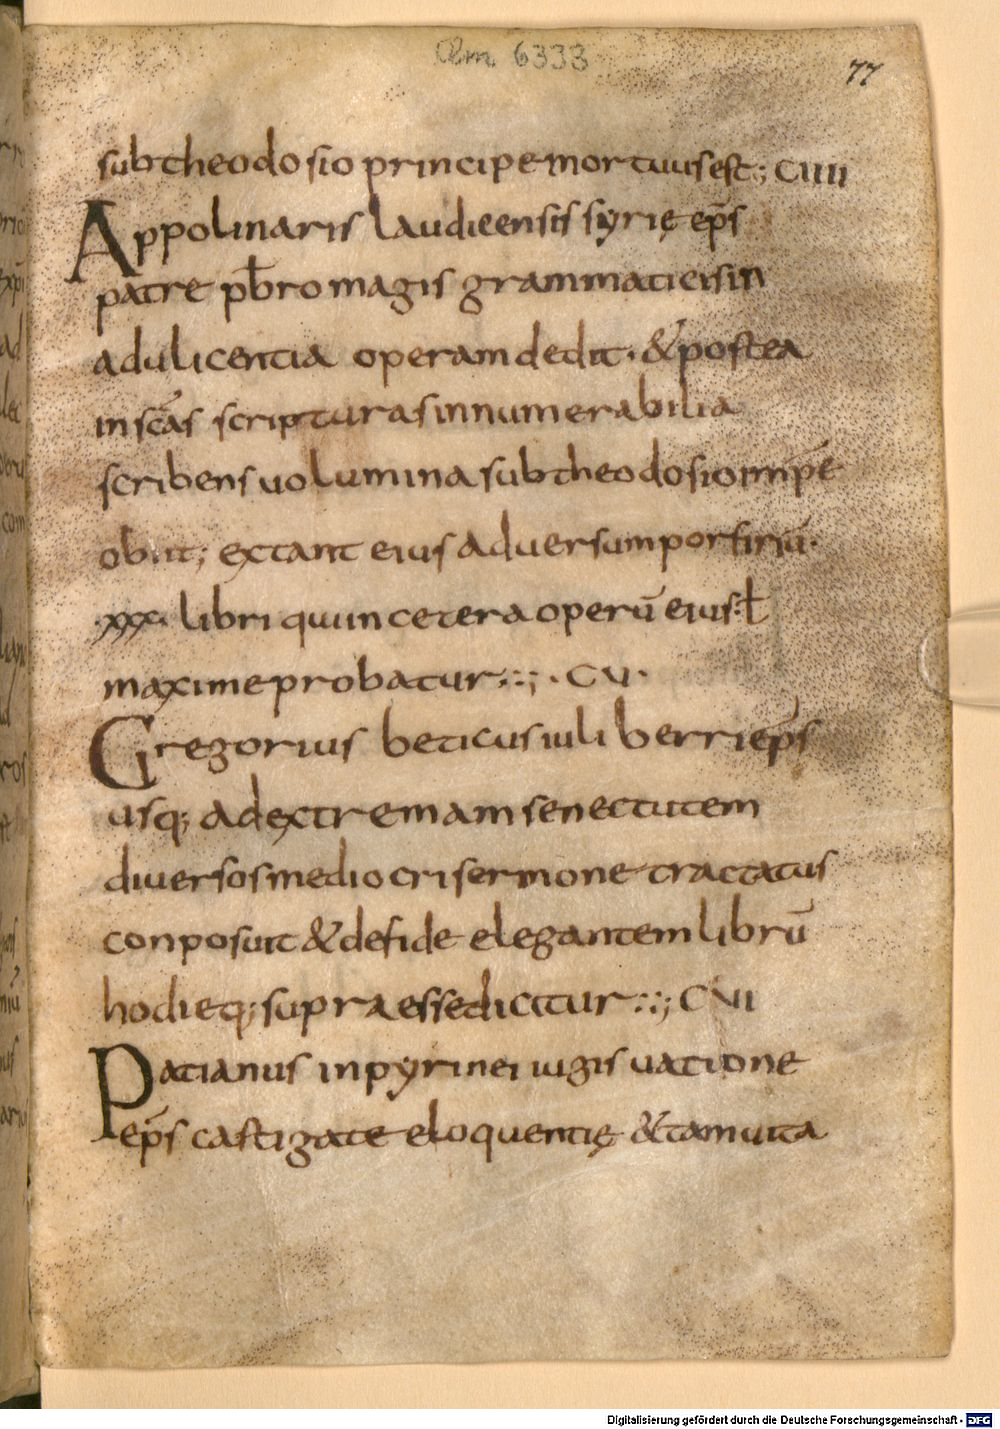 Clm 6333
77
sub theodosio principe mortuus est:; CIIII
Appolinaris laudicensis syrię ep̄s
patre pb̄ro magis grammaticis in
adulicentia operam dedit. & postea
in sc̄as scripturas innumerabilia
scribens uolumina sub theodosio imp̄e
obiit; extant eius aduersum porfiriū.
.xxx. libri qui in cetera operū eius: ł
maxime probatur:.:; . CV.
Gregorius beticus iuliberri ep̄s
usq; ad extremam senectutem
diuersos mediocri sermone tractatus
conposuit & de fide elegantem librū
hodieq; supra esse dicitur:.:; CVI
Patianus in pyrinei iugis uatione
ep̄s castigate eloquentię & tam uita
Digitalisierung gefördert durch die Deutsche Forschungsgemeinschaft - DFG